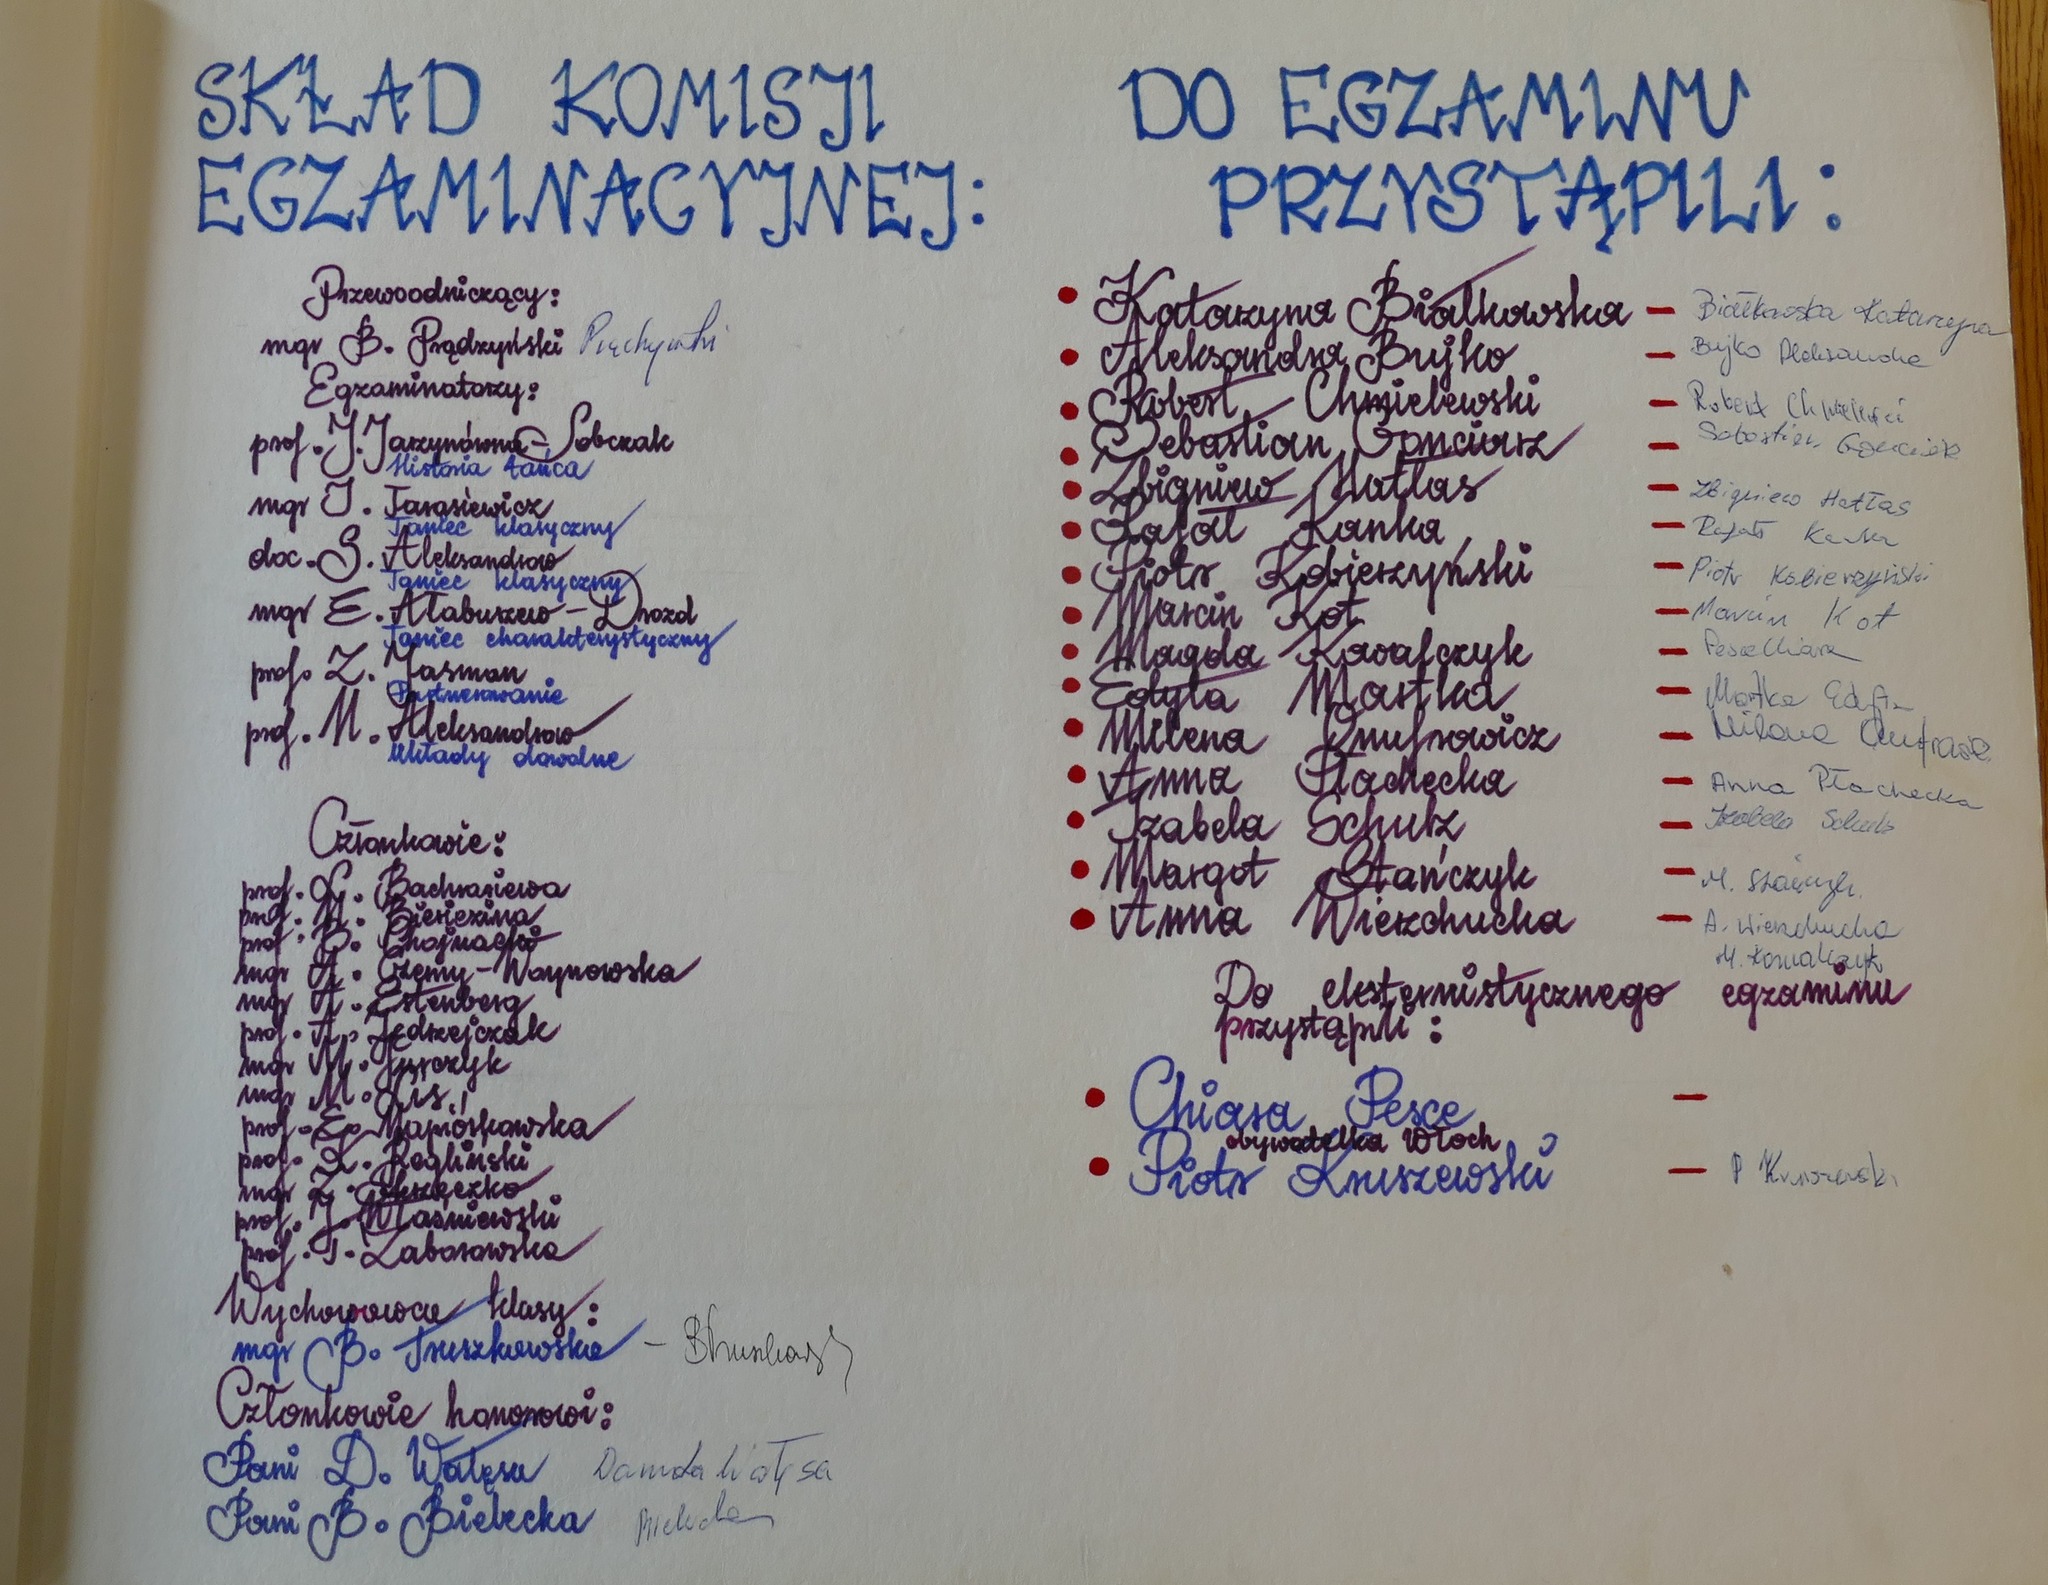 SKŁAD KOMISJI
EGZAMINACYJNEJ:
Przewoodniczący:
mgr B. Prądzyński
Egzaminatorzy:
prof. J. Jarzynówna-Sobczak
Historia tańca
mgr J. Jarasiewicz
Taniec klasyczny
doc. S. Aleksandrow
Taniec klasyczny
mgr E. Ałabuszew-Drozd
Taniec charakterystyczny
prof. Z. Jasman
Partnerowanie
prof. M. Aleksandrow
Układy dowolne
Członkowie:
prof. L. Bachrasiewa
prof.
prof. B. Chojnacki
mgr A. Czemy-Woynowska
mgr A. Estenberg
prof. A. Jędrzejczak
mgr M. Jurczyk
mgr M. Lis
prof. E.
prof. K. Rogliński
mgr Z.
prof. J. Waśniewski
prof. T. Zaborowska
Wychowawca klasy:
mgr B. Truszkowska –
Członkowie honorowi:
Pani D. Wałęsa Danuta Wałęsa
Pani B. Bielecka Bielecka
DO EGZAMINU
PRZYSTĄPILI:
• Katarzyna Białkowska – Białkowska Katarzyna
• Aleksandra Bujko – Bujko Aleksandra
• Robert Chmielewski – Robert Chmielewski
• Sebastian Gonciarz – Sebastian Gonciarz
• Zbigniew Hatłas – Zbigniew Hatłas
• Rafał Kanka – Rafał Kanka
• Piotr Kobierzyński – Piotr Kobierzyński
• Marcin Kot – Marcin Kot
• Magda Kowalczyk – Pesce Chiara
• Edyta Mostka – Mostka Edyta
• Milena Onufrowicz – Milena Onufrowicz
• Anna Płachecka – Anna Płachecka
• Izabela Schulz – Izabela Schulz
• Margot Stańczyk – M. Stańczyk
• Anna Wierzchucka – A. Wierzchucka
M. Kowalczyk
Do eksternistycznego egzaminu
przystąpili:
• Chiara Pesce –
obywatelka Włoch
• Piotr Kruszewski – P Kruszewski